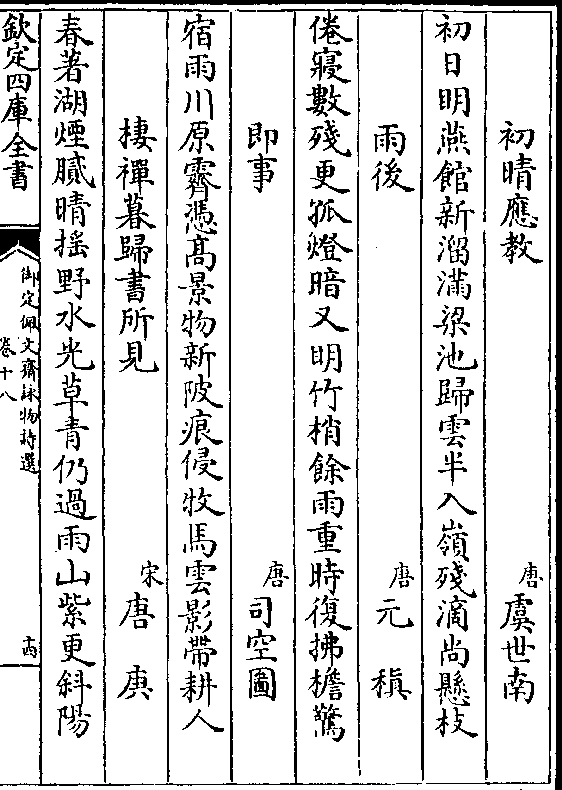 初晴應教　唐　虞世南
初日明燕館新溜滿梁池歸雲半入嶺殘滴尚懸枝
雨後　唐　元稹
倦寢數殘更孤燈暗又明竹梢餘雨重時復拂檐驚
即事　唐　司空圖
宿雨川原霽憑高景物新陂痕侵牧馬雲影帶耕人
棲禪暮歸書所見　宋　唐庚
春著湖煙膩晴揺野水光草青仍過雨山紫更斜陽
欽定四庫全書
御定佩文齋詠物詩選
卷十八
十四